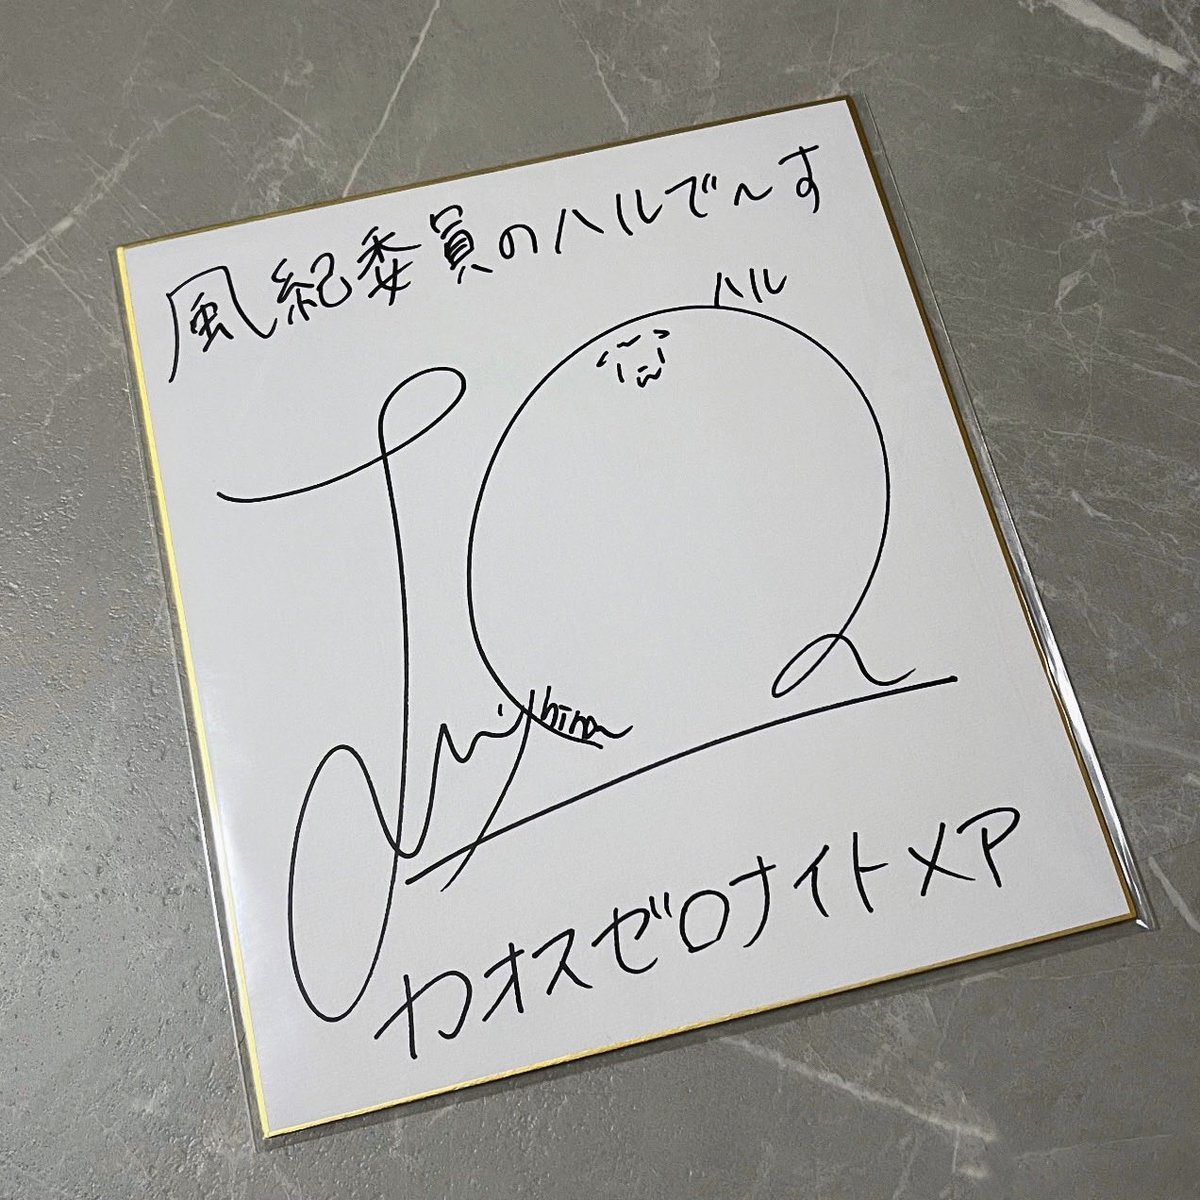 風紀委員のハルで〜す
ハル
カオスゼロナイトメア